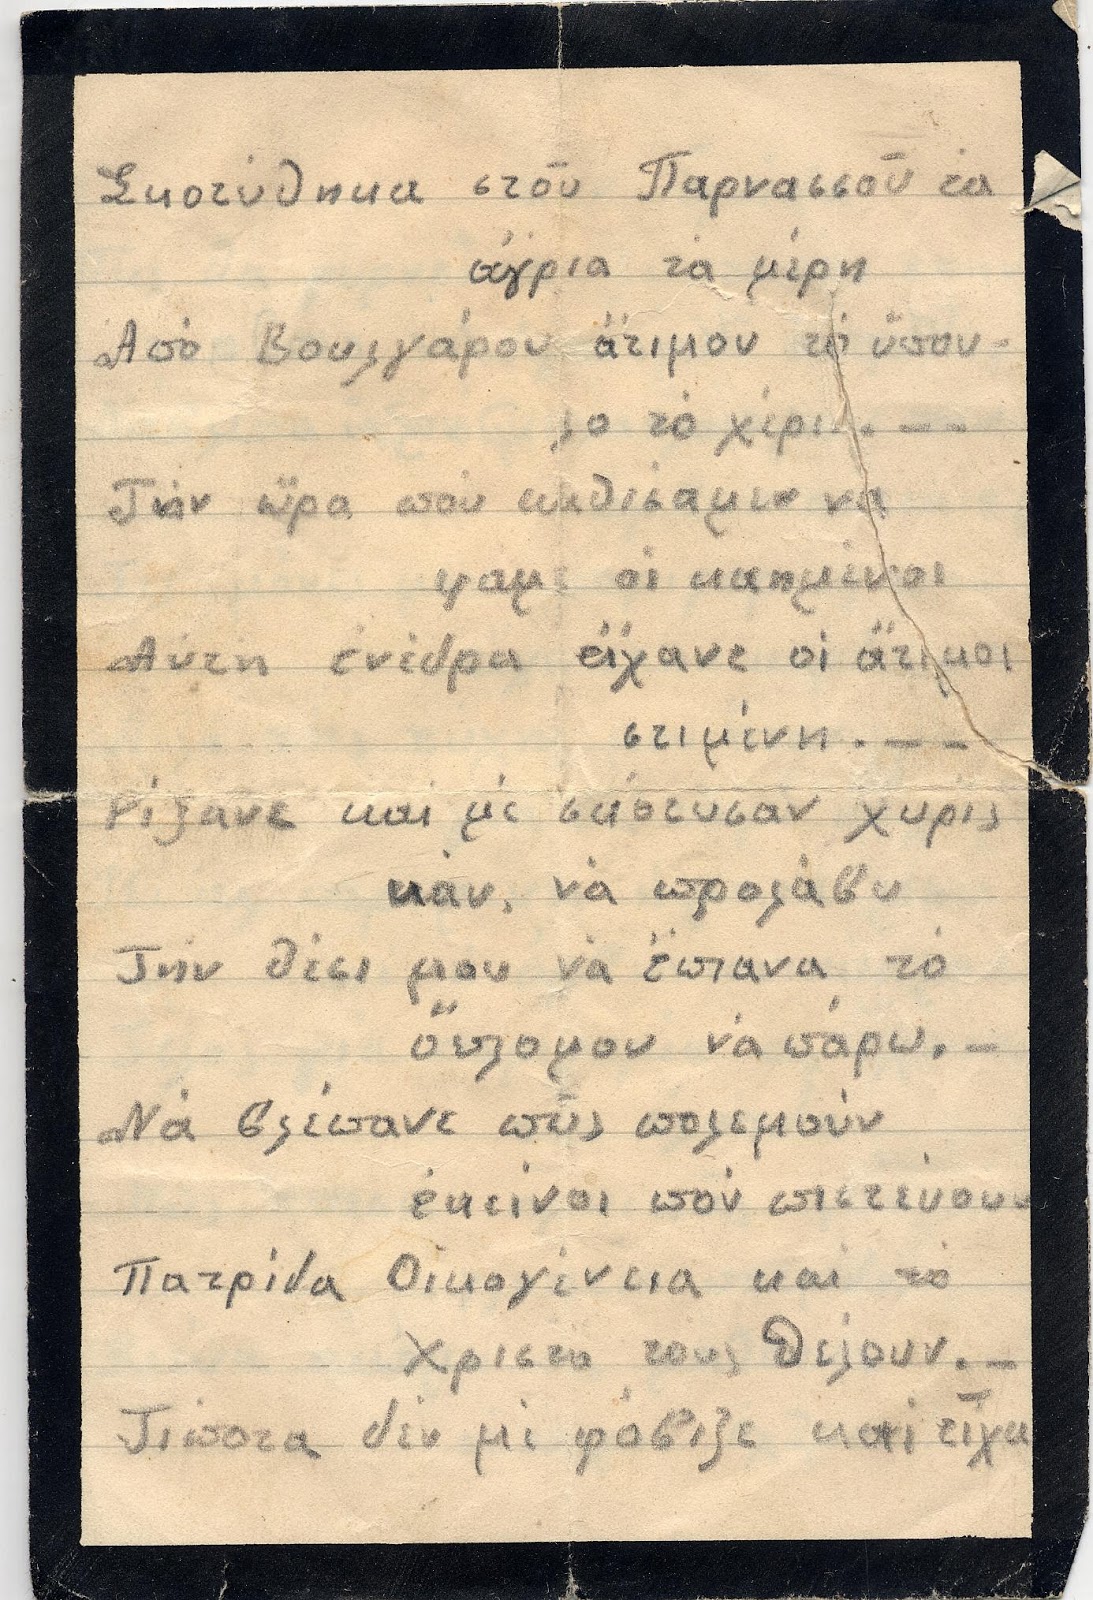 Σκοτύθηκα στοῦ Παρνασσοῦ τα
άγρια τα μέρη
Από Βουλγάρου άτιμου τό ὕπου-
λο τό χέρι. – –
Τήν ὥρα πού καθίσαμεν να
φαμε οἱ καημένοι
Αύτη ένέδρα εἴχανε οἱ ἄτιμοι
στιμένη. – –
ρίξανε και μέ σκότυσαν χυρίς
κάν, νά προλάβυ
Τήν θέσι μου νά ἔπιανα τό
ὅπλομου νά πάρω. –
Νά βλέπανε πῶς πολεμούν
έκείνοι πού πιστεύουν
Πατρίδα Οἰκογένεια και τό
Χριστό τούς θέλουν. –
Τίποτα δέν μέ φόβιζε και εἶχα